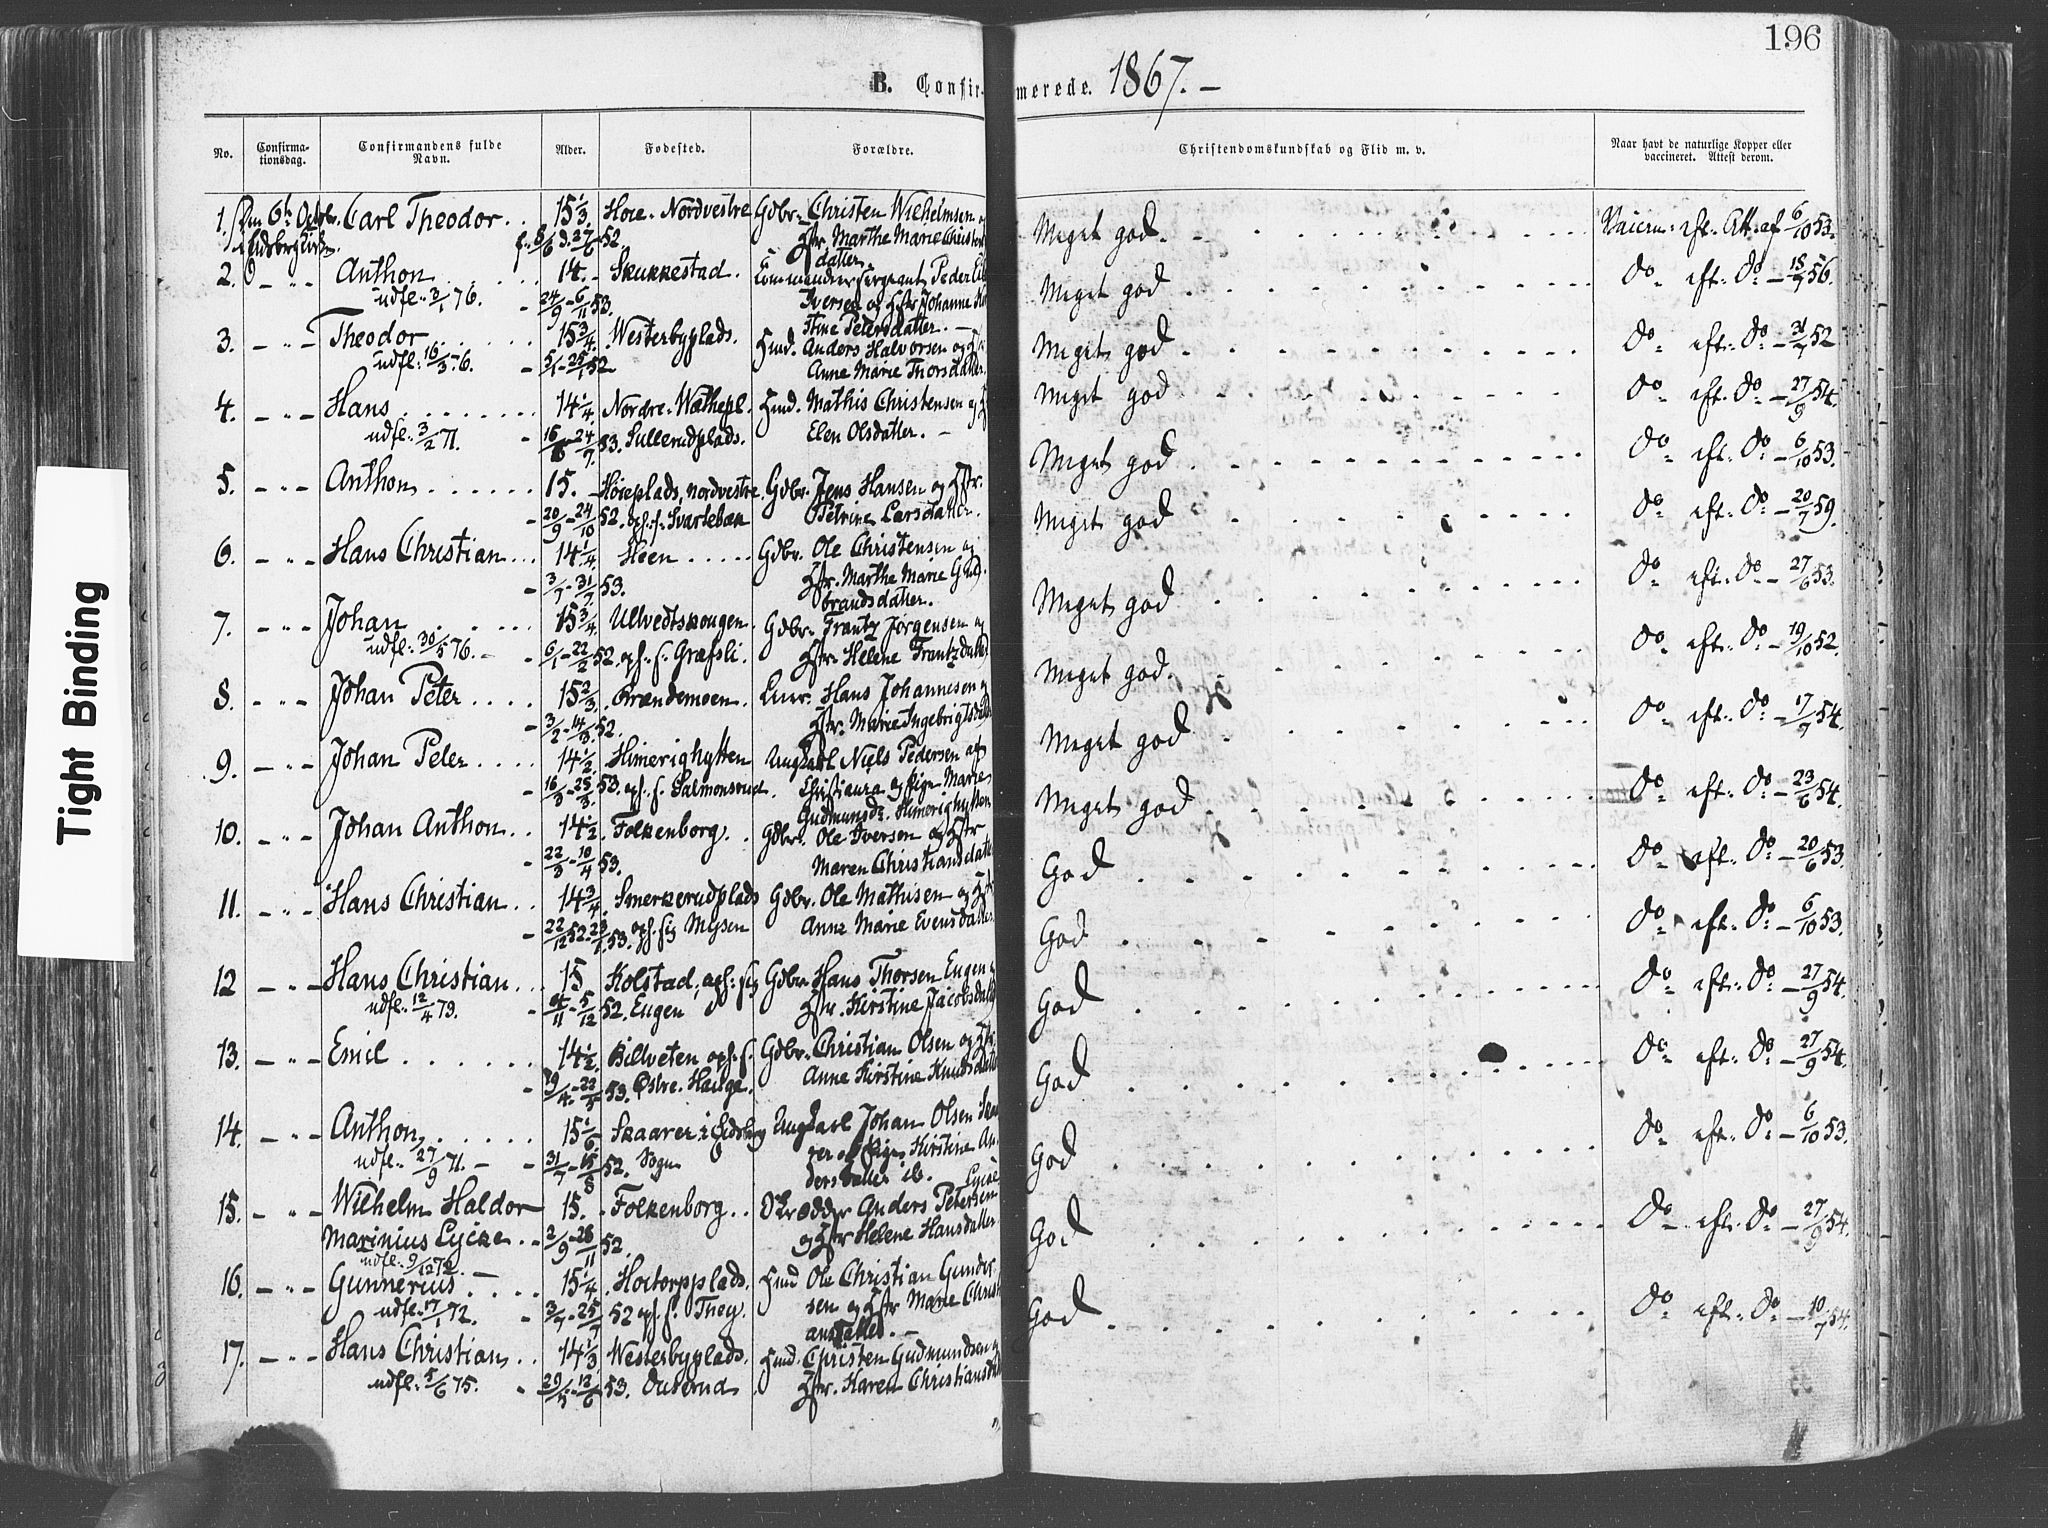 196
B. Confir- merede. 1867. -
No. Confirma-tionsdag. Confirmandens fulde Navn. Alder. Fødested. Forældre. Christendomskundskab og Flid m. v. Naar havt de naturlige Kopper eller vaccineret. Attest derom.
1. Den 6te Octobr. Carl Theodor . . 15 1/3. Høie. Nordvestre Gdbr. Christen Wilhelmsen Meget god. Vaccin. eft. Att. af 6/10 53.
f. 8/6 d. 27/6 52. Hstr. Marthe Marie Christens
datter.
2. - " - Anthon 14. Skukkestad. Commandeersergeant Peder Meget god Do eft. Do - 18/7 56.
udfl. 3/1 76. - 24/9 - 6/11 53. Iversen og Hstr Johanne
Stine Petersdatter. -
3. - " - Theodor 15 3/4. Westerbyplads. Husmd. Anders Halvorsen og Meget god Do eft. Do - 31/7 52
udfl. 16/3 76. - 5/1 - 25/1 52 Anne Marie Thorsdatter.
4. - " - Hans 14 1/4. Nordre Wæthepl. Husmd. Mathis Christensen og Meget god Do eft. Do - 27/9 54.
udfl. 3/2 71. - 16/6 - 24/7 53. Sullerudplads. Elen Olsdatter. -
5. - " - Anthon 15. Høieplads, nordvestre Gdbr. Jens Hansen og Hstr. Meget god Do eft. Do - 6/10 53.
- 20/9 - 24/10 52. oph. f. Svarteban Petrine Larsdatter.
6. - " - Hans Christian . . 14 1/4. Heen Gdbr. Ole Christensen og Meget god Do eft. Do - 20/7 59.
- 3/7 - 31/7 53. Hstr. Marthe Marie Gud-
brandsdatter.
7. - " - Johan 15 3/4. Ullvedtskougen. Gdbr. Frantz Jørgensen og Meget god Do eft. Do - 27/6 53.
udfl. 30/5 76. - - 6/1 - 22/2 52. oph. f. Græfsli. Hstr. Helene Frantzdatter
8. - " - Johan Peter 15 2/3. Brændemoen. Leier. Hans Johannesen og Meget god. Do eft. Do - 19/10 52.
- 3/2 - 14/3 52. Hstr. Marie Ingebrigtsdatter
9. - " - Johan Peter 14 1/2. Himerighytten Ungkarl Niels Pedersen af Meget god Do eft. Do - 17/9 54.
- 16/3 - 25/3 53. oph. f. Salmonsrud. Christiania og Pige Marie
Gudmundsdr. Himerighytten
10. - " - Johan Anthon . . 14 1/2. Folkenborg. Gdbr. Ole Iversen og Hstr Meget god Do eft. Do - 23/6 54.
- 22/3 - 10/4 53. Maren Christiansdatter
11. - " - Hans Christian . . 14 3/4. Smerkerudplads Gdbr. Ole Mathisen og Hstr God Do eft. Do - 20/6 53
- 22/12 52. 23/1 53. oph. sig Mysen Anne Marie Evensdatter
12 - " - Hans Christian 15 Kolstad, oph. sig Gdbr Hans Thorsen Eugen God Do eft. Do - 6/10 53.
udfl. 12/4 73. - 4/11 - 5/12 52. Eugen Hstr. Kirstine Jacobsdatter
13. - " - Emil 14 1/2. Billveten oph. f. Gdbr. Christian Olsen og Hstr God Do eft. Do - 27/9 54.
- 19/4 - 22/5 53. Østre. Hauge. Anne Kirstine Knudsdatter
14. - " - Anthon 15 1/6. Skaarer i Eidsberg Ungkarl Johan Olsen Skaa God Do eft. Do - 27/9 54.
udfl. 27/9 71. - - 31/7 - 15/8 52. Sogn rer og Pige Kirstine An-
dersdatter ib.
15. - " - Wilhelm Haldor 15. Folkenborg . . Skrædder Anders Petersen Lycke God Do eft. Do - 6/10 53.
Marinius Lycke . . - 2/9 - 28/11 52. og Hstr Helene Hansdatter
udfl. 9/12 72.
16. - " - Gunnerius 15 1/4. Holtorpplads. Husmd Ole Christian Gunder God Do eft. Do - 27/9 54.
udfl. 17/1 72. - 3/7 - 25/7 52 oph. f. Thøy. sen og Hstr Marie Christi
ansdatter. -
17. - " - Hans Christian . . 14 1/3 Westerbyplads. Husmd. Christen Gudmundsen og God Do eft. Do - 10/7 54.
udfl. 5/6 75. - 29/5 - 12/6 53. Duserud Hstr. Karen Christiansdatter
Tight Binding